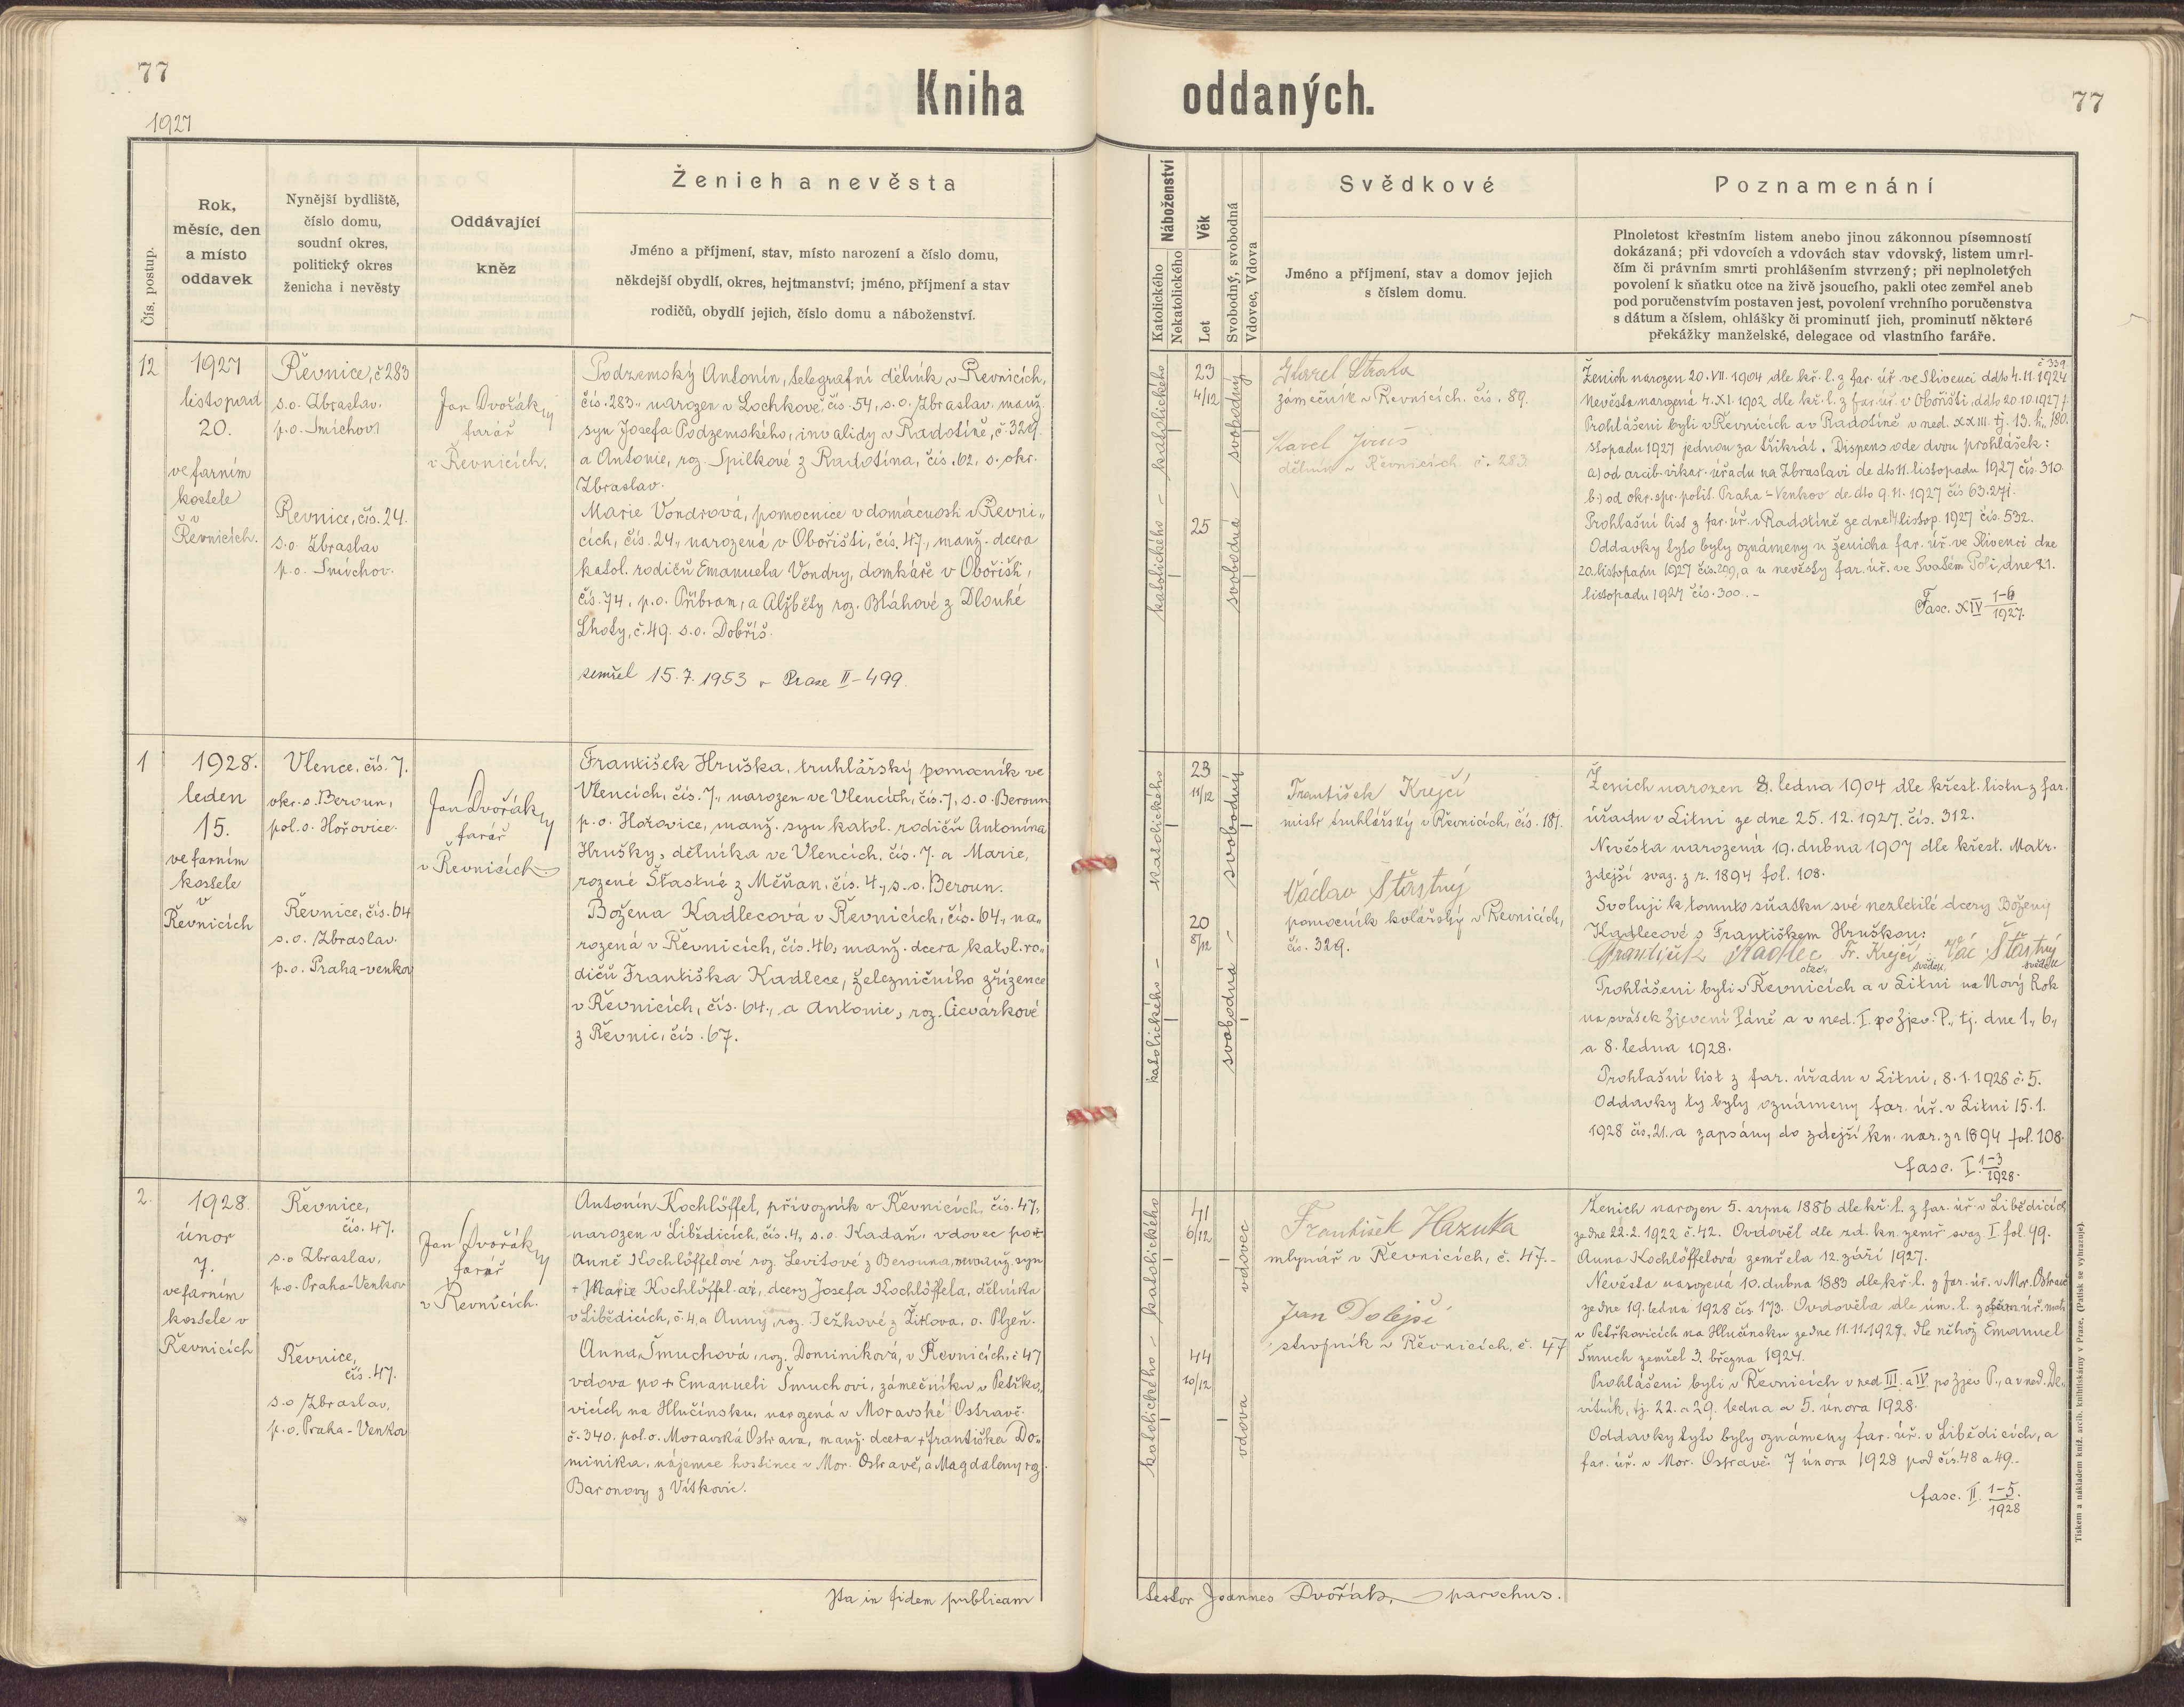 77
Kniha
oddaných.
77
1927
Čís. postup.
Rok,
měsíc, den
a místo
oddavek
Nynější bydliště,
číslo domu,
soudní okres,
politický okres
ženicha i nevěsty
Oddávající
kněz
Ženich a nevěsta
Jméno a příjmení, stav, místo narození a číslo domu,
někdejší obydlí, okres, hejtmanství; jméno, příjmení a stav
rodičů, obydlí jejich, číslo domu a náboženství.
Náboženství
Katolického
Nekatolického
Věk
Let
Svobodný, svobodná
Vdovec, Vdova
Svědkové
Jméno a příjmení, stav a domov jejich
s číslem domu.
Poznamenání
Plnoletost křestním listem anebo jinou zákonnou písemností
dokázaná; při vdovcích a vdovách stav vdovský, listem umrl-
čím či právním smrti prohlášením stvrzený; při neplnoletých
povolení k sňatku otce na živě jsoucího, pakli otec zemřel aneb
pod poručenstvím postaven jest, povolení vrchního poručenstva
s dátum a číslem, ohlášky či prominutí jich, prominutí některé
překážky manželské, delegace od vlastního faráře.
12
1927
listopad
20.
ve farním
kostele
v
Řevnicích.
Řevnice, č 283
s.o. Zbraslav.
p.o. Smíchov
Řevnice, čís. 24.
s.o. Zbraslav
p.o. Smíchov.
Jan Dvořák
farář
v Řevnicích.
Podzemský Antonín, telegrafní dělník v Řevnicích,
čís. 283., narozen v Lochkově, čís. 54, s.o. Zbraslav. manž.
syn Josefa Podzemského, invalidy v Radotíně, č. 329.
a Antonie, roz. Spilkové z Radotína, čís. 62, s. okr.
Zbraslav.
Marie Vondrová, pomocnice v domácnosti v Řevni„
cích, čís. 24., narozená v Obořišti, čís. 47., manž. dcera
katol. rodičů Emanuela Vondry, domkáře v Obořišti,
čís. 74, p.o. Příbram, a Alžběty roz. Bláhové z Dlouhé
Lhoty, č. 49. s.o. Dobříš.
zemřel 15.7.1953 v Praze II-499.
katolického - katolického
23
4/12
25
svobodná - svobodný
Karel Straka
zámečník v Řevnicích. čís. 89.
Karel Jirus
dělník v Řevnicích č. 283
č 339
Ženich narozen 20. VII. 1904 dle kř. l. z far. úř. ve Slivenci ddto 4.11.1924
Nevěsta narozená 4. XI. 1902 dle kř. l. z far. úř. v Obořišti, ddto 20.10.1927 č.
Prohlášeni byli v Řevnicích a v Radotíně v ned. XXIII. tj. 13. li„ 180.
stopadu 1927 jednou za třikrát. Dispens ode dvou prohlášek:
a) od arcib. vikar. úřadu na Zbraslavi de dto 11. listopadu 1927 čís. 310.
b.) od okr. spr. polit. Praha - Venkov de dto 9.11.1927 čís 63.271.
Prohlašní list z far. úř. v Radotíně ze dne 14 listop. 1927 čís. 532.
Oddavky tyto byly oznámeny u ženicha far. úř. ve Slivenci dne
20. listopadu 1927 čís. 299, a u nevěsty far. úř. ve Svatém Poli, dne 21.
listopadu 1927 čís. 300. -
Fasc. XIV 1-6/1927.
1
1928.
leden
15.
ve farním
kostele
v
Řevnicích
Vlence, čís. 7.
okr. s. Beroun,
pol. o. Hořovice.
Řevnice, čís. 64
s.o. Zbraslav.
p.o. Praha-venkov
Jan Dvořák
farář
v Řevnicích
František Hruška, truhlářský pomocník ve
Vlencích, čís. 7., narozen ve Vlencích, čís. 7, s.o. Beroun
p.o. Hořovice, manž. syn katol. rodičů Antonína
Hrušky, dělníka ve Vlencích, čís. 7. a Marie,
rozené Šťastné z Měňan, čís. 4., s.o. Beroun.
Božena Kadlecová v Řevnicích, čís. 64., na„
rozená v Řevnicích, čís. 46, manž. dcera katol. ro„
dičů Františka Kadlece, železničního zřízence
v Řevnicích, čís. 64., a Antonie, roz. Cicvárkové
z Řevnic, čís. 67.
katolického - katolického
23
11/12
20
8/12
svobodná - svobodný
František Krejčí
mistr truhlářský v Řevnicích, čís. 181.
Václav Šťastný
pomocník kolářský v Řevnicích,
čís. 329.
Ženich narozen 8. ledna 1904 dle křest. listu z far.
úřadu v Litni ze dne 25.12.1927. čís. 312.
Nevěsta narozená 19. dubna 1907 dle křest. Matr.
zdejší svaz. z r. 1894 fol. 108.
Svoluji k tomuto sňatku své nezletilé dcery Boženy
Kadlecové s Františkem Hruškou:
František Kadlec Fr. Krejčí Vác Šťastný
otec„ svědek, svědek
Prohlášeni byli v Řevnicích a v Litni na Nový Rok
na svátek Zjevení Páně a v ned. I. po Zjev. P., tj. dne 1., 6.,
a 8. ledna 1928.
Prohlašní list z far. úřadu v Litni, 8.1.1928 č. 5.
Oddavky ty byly oznámeny far. úř. v Litni 15.1.
1928 čís. 21. a zapsány do zdejší kn. nar. z r 1894 fol. 108.
fasc. I. 1-3/1928.
2.
1928.
únor
7.
ve farním
kostele v
Řevnicích
Řevnice,
čís. 47.
s.o Zbraslav,
p.o. Praha-Venkov
Řevnice,
čís. 47.
s.o Zbraslav,
p.o. Praha - Venkov
Jan Dvořák
farář
v Řevnicích.
Antonín Kochlöffel, přívozník v Řevnicích, čís. 47,
narozen v Libědicích, čís. 4, s.o. Kadaň, vdovec po †
Anně Kochlöffelové roz. Levitové z Berouna, manž. syn
+ Marie Kochlöffel-ař, dcery Josefa Kochlöffela, dělníka
v Libědicích, č. 4, a Anny, roz. Ježkové z Žitlova, o. Plzeň.
Anna Šmuchová, roz. Dominiková, v Řevnicích, č 47
vdova po + Emanueli Šmuchovi, zámečníku v Petřko„
vicích na Hlučínsku, narozená v Moravské Ostravě.
č. 340. pol. o. Moravská Ostrava, manž. dcera + Františka Do„
minika, nájemce hostince v Mor. Ostravě, a Magdaleny roz.
Baronovy z Vítkovic.
katolického - katolického
41
6/12
44
10/12
vdovec
vdova
František Hazuka
mlynář v Řevnicích, č. 47. -
Jan Dolejší
strojník v Řevnicích, č. 47
Ženich narozen 5. srpna 1886 dle kř. l. z far. úř. v Libědicích
ze dne 22.2.1922 č. 42. Ovdověl dle zd. kn. zemř. svaz. I. fol. 99.
Anna Kochlöffelová zemřela 12. září 1927.
Nevěsta narozená 10. dubna 1883 dle kř. l. z far. úř. v Mor. Ostravě
ze dne 19. ledna 1928 čís. 173. Ovdověla dle úm. l.
v Petřkovicích na Hlučínsku ze dne 11.11.1927. dle něhož Emanuel
Šmuch zemřel 3. března 1924.
Prohlášeni byli v Řevnicích v ned III. a IV. po Zjev P., a v ned. De„
vítník, tj. 22. a 29. ledna a 5. února 1928.
Oddavky tyto byly oznámeny far. úř. v Libědicích, a
far. úř. v Mor. Ostravě 7 února 1928 pod čís. 48 a 49. -
fasc. II. 1-5./1928
Tiskem a nákladem kníž. arcib. knihtiskárny v Praze. (Patisk se vyhrazuje).
Ita in fidem publicam
testor Joannes Dvořák, parochus.